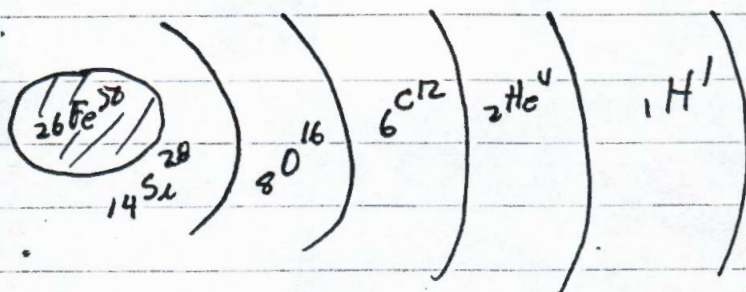 ₂₆Fe⁵⁸
₁₄Si²⁸
₈O¹⁶
₆C¹²
₂He⁴
₁H¹